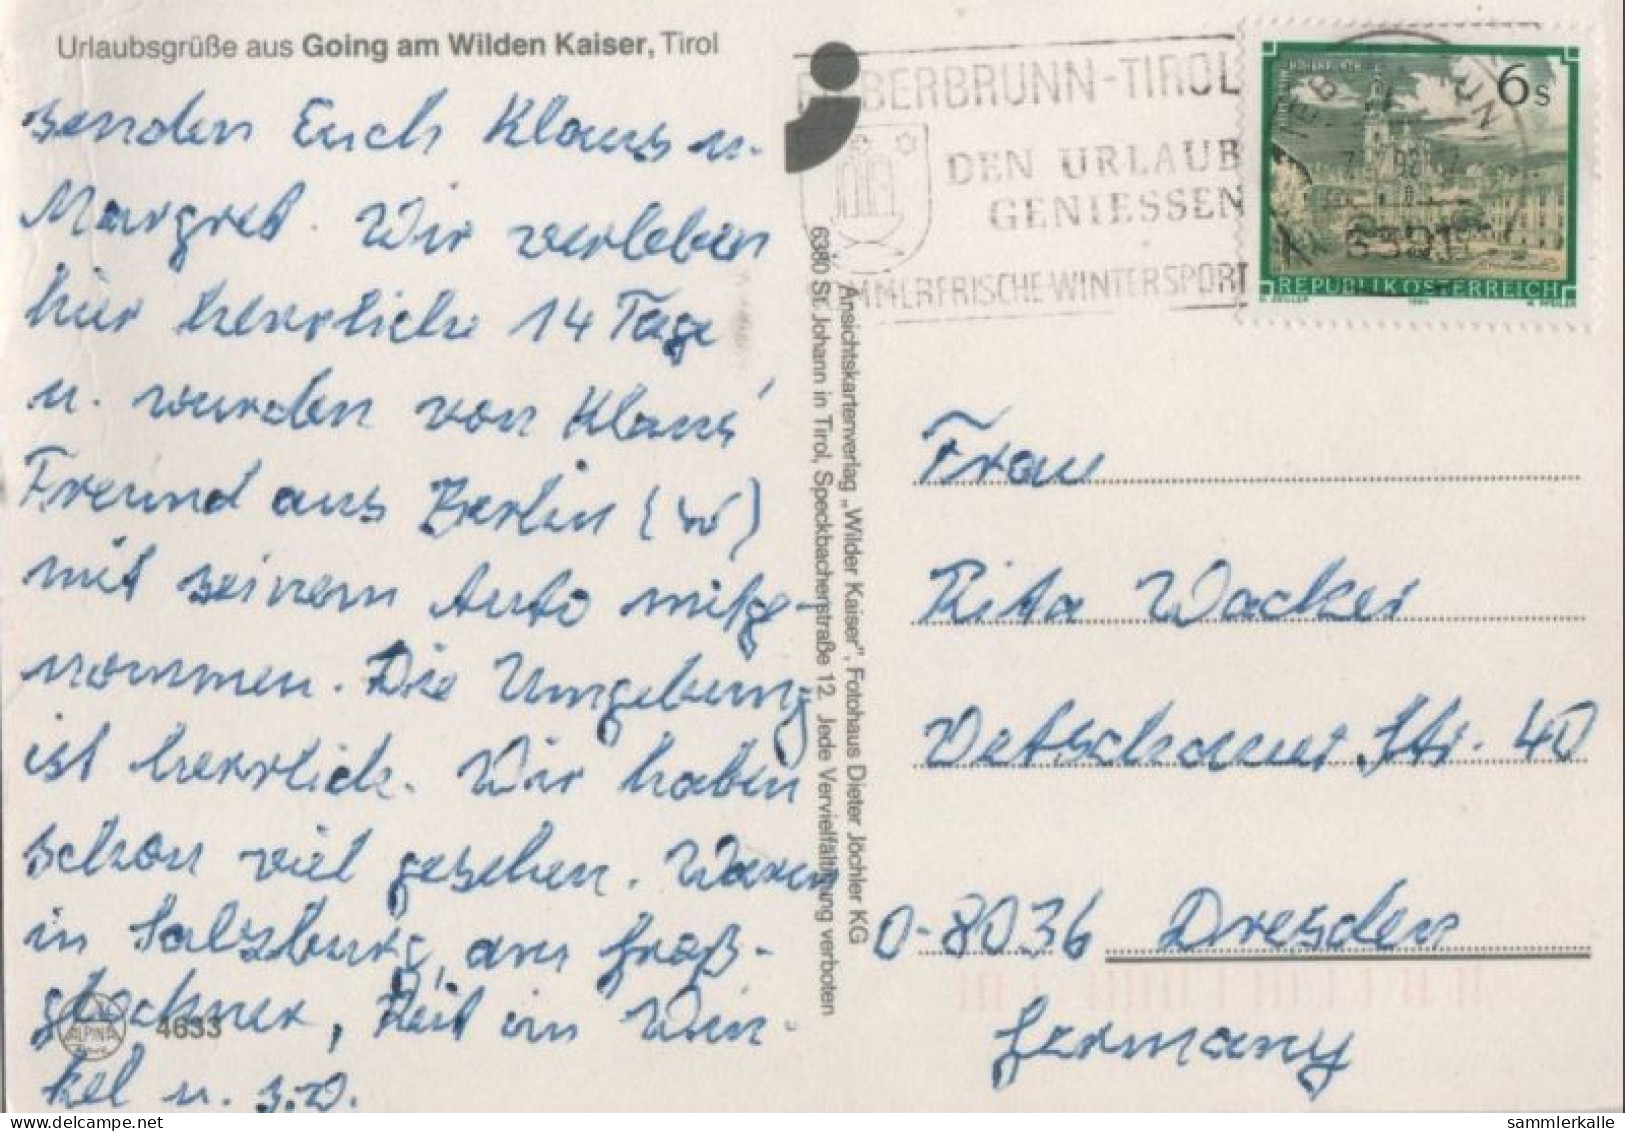 Urlaubsgrüße aus Going am Wilden Kaiser, Tirol
senden Euch Klaus u.
Margret. Wir verleben
hier herrliche 14 Tage
u. wurden von Klaus'
Freund aus Berlin (W)
mit seinem Auto mitge-
nommen. Die Umgebung
ist herrlich. Wir haben
schon viel gesehen. Waren
in Salzburg, am Groß-
glockner, Zell am Win-
kel u. s.w.
ALPINA
4633
Ansichtskartenverlag „Wilder Kaiser", Fotohaus Dieter Jöchler KG
6380 St. Johann in Tirol, Speckbacherstraße 12. Jede Vervielfältigung verboten
BERBRUNN-TIROL
DEN URLAUB
GENIESSEN
MMERFRISCHE-WINTERSPORT
6 S
REPUBLIK ÖSTERREICH
Frau
Rita Wacker
Vetschauer Str. 40
O-8036 Dresden
Germany
sammlerkalle